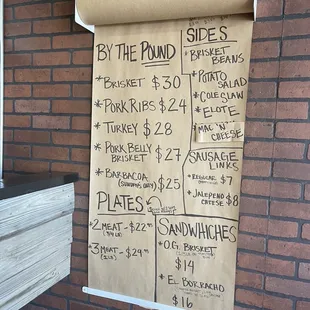 BY THE POUND
*BRISKET $30
*PORK RIBS $24
*TURKEY $28
*PORK BELLY
BRISKET $27
*BARBACOA
(SUNDAYS ONLY) $25
PLATES
*2 MEAT - $22
*3 MEAT - $29
SIDES
*BRISKET
BEANS
*POTATO
SALAD
*COLESLAW
*ELOTE
MAC 'N'
CHEESE
SAUSAGE
LINKS
*REGULAR $7
*JALEPENO
CHEESE $8
SANDWHICHES
*O.G. BRISKET
$14
*EL BORRACHO
$16